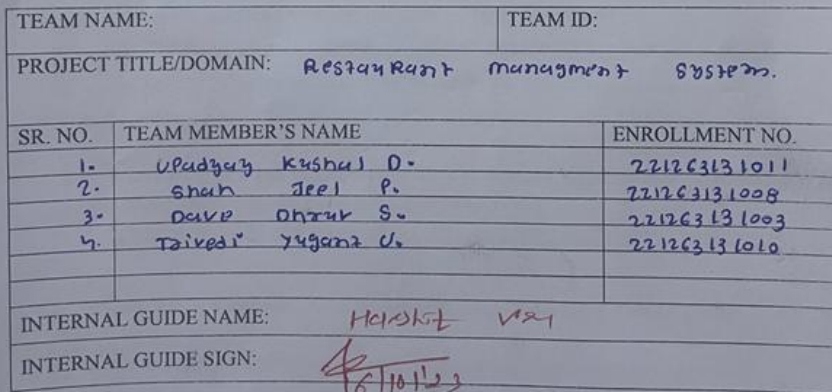 TEAM NAME: TEAM ID:
PROJECT TITLE/DOMAIN: Restaurant managment system.
SR. NO. TEAM MEMBER'S NAME ENROLLMENT NO.
1. Upadyay Kushal D. 221263131011
2. Shah Jeel P. 221263131008
3. Dave Dhruv S. 221263131003
4. Trivedi Yugant U. 221263131010
INTERNAL GUIDE NAME: Harshit
INTERNAL GUIDE SIGN: 6/10/23